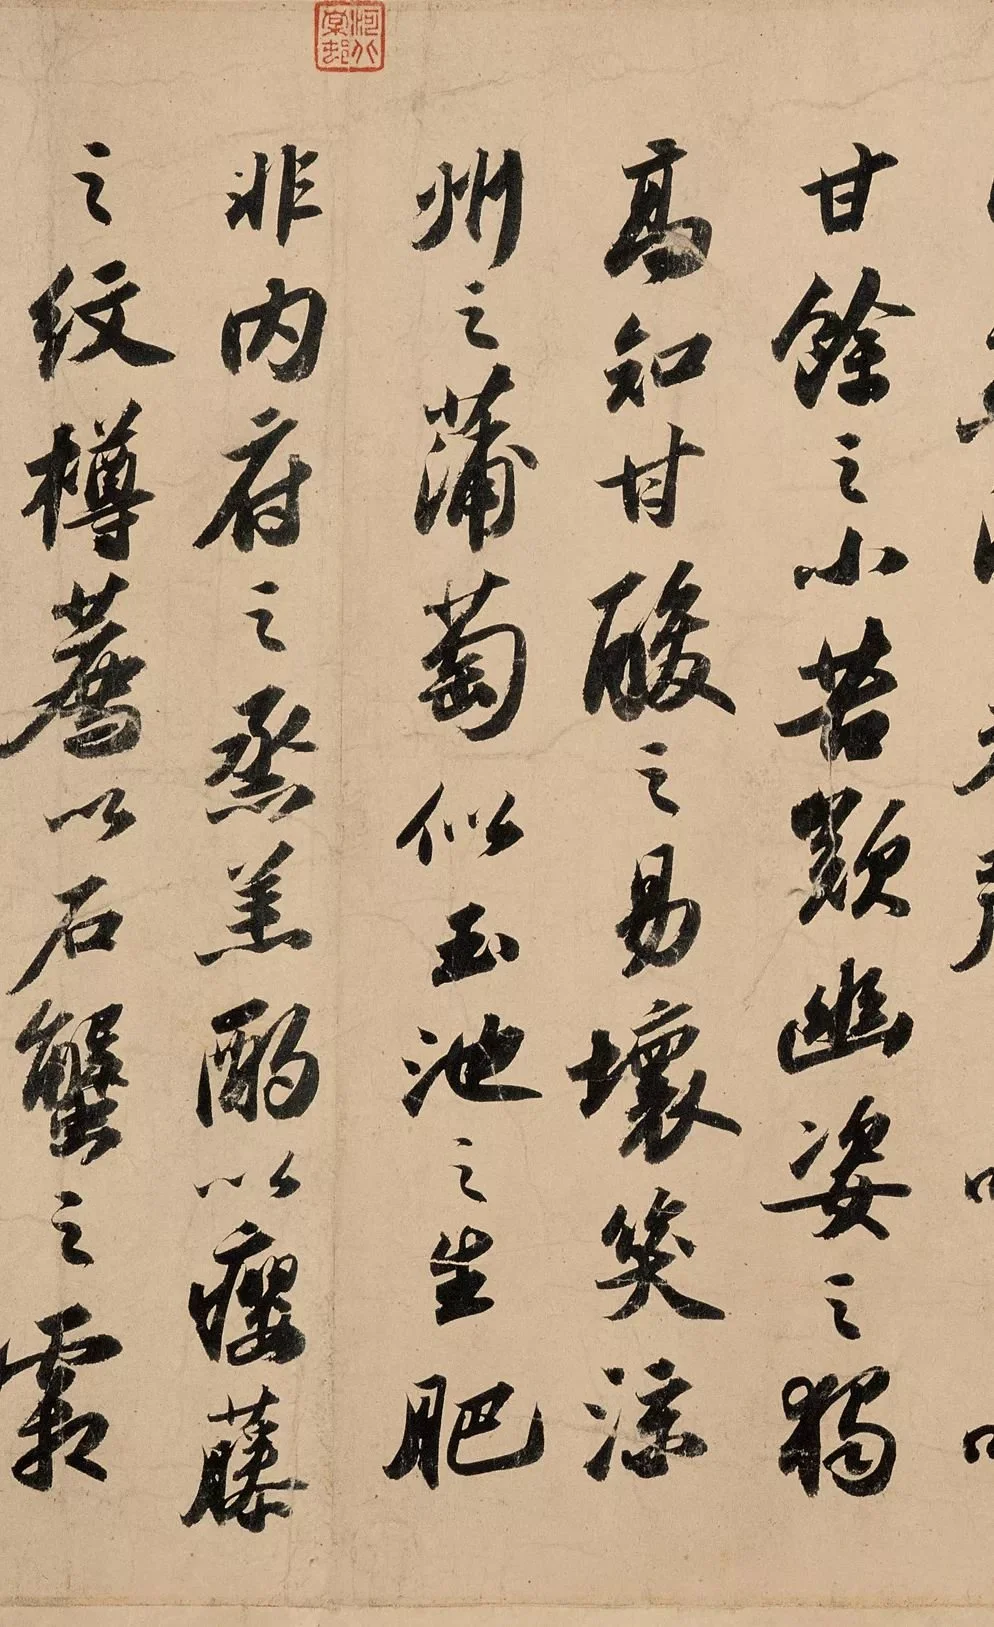 甘餘之小苦歎幽姿之獨
高知甘酸之易壞笑涼
州之蒲萄似玉池之生肥
非内府之烝羔酌以癭藤
之紋樽薦以石蟹之霜